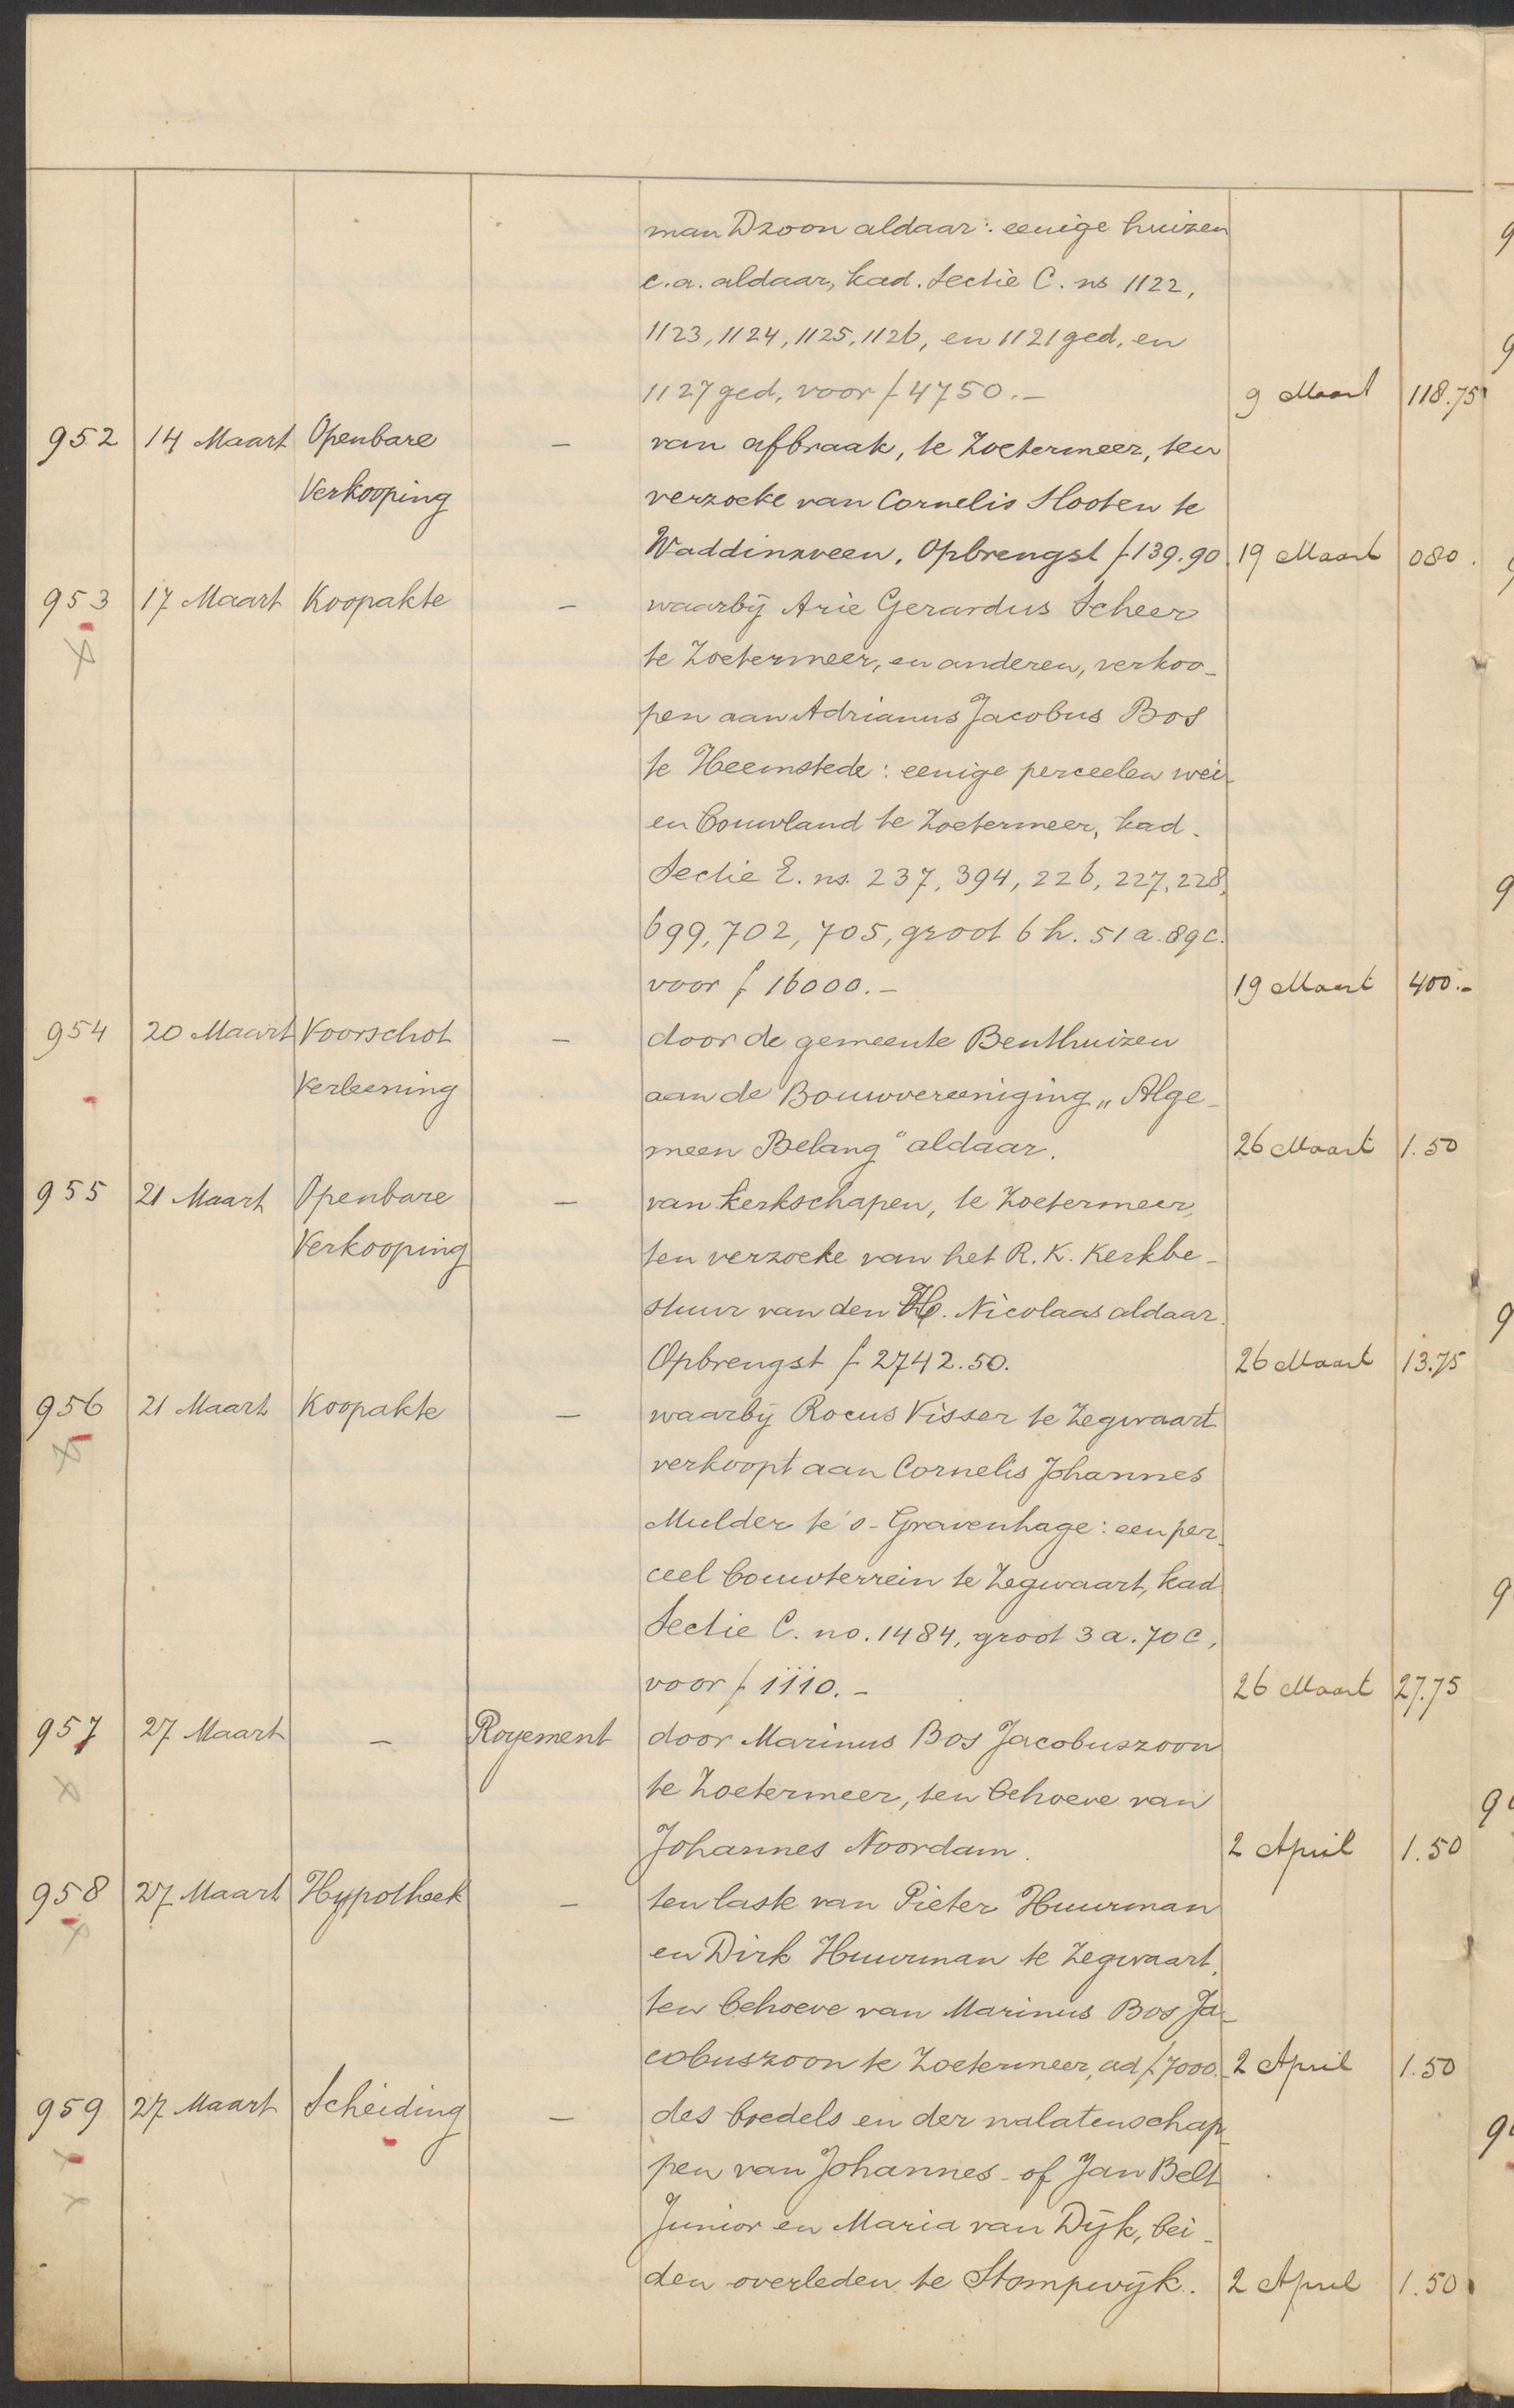 man Dzoon aldaar: eenige huizen
c.a. aldaar, kad. Sectie C. ns 1122,
1123, 1124, 1125, 1126, en 1121 ged, en
1127 ged, voor f 4750.- 9 Maart 118.75
952 14 Maart Openbare - van afbraak, te Zoetermeer, ten
Verkooping verzoeke van Cornelis Slooten te
Waddinxveen, Opbrengst f 139.90. 19 Maart 080.
953 17 Maart Koopakte - waarbij Arie Gerardus Scheer
te Zoetermeer, en anderen, verkoo-
pen aan Adrianus Jacobus Bos
te Heemstede: eenige perceelen wei-
en bouwland te Zoetermeer, kad.
Sectie E. ns. 237, 394, 226, 227, 228,
699, 702, 705, groot 6 h. 51 a. 89 c.
voor f 16000.- 19 Maart 400.-
954 20 Maart Voorschot - door de gemeente Benthuizen
Verleening aan de Bouwvereeniging „Alge-
meen Belang" aldaar. 26 Maart 1.50
955 21 Maart Openbare - van kerkschapen, te Zoetermeer,
Verkooping ten verzoeke van het R. K. Kerkbe-
stuur van den H. Nicolaas aldaar.
Opbrengst f 2742.50. 26 Maart 13.75
956 21 Maart Koopakte - waarbij Rocus Visser te Zegwaart
verkoopt aan Cornelis Johannes
Mulder te 's-Gravenhage: een per-
ceel bouwterrein te Zegwaart, kad
Sectie C. no. 1484, groot 3 a. 70 c,
voor f 1110.- 26 Maart 27.75
957 27 Maart - Royement door Marinus Bos Jacobuszoon
te Zoetermeer, ten behoeve van
Johannes Noordam. 2 April 1.50
958 27 Maart Hypotheek - ten laste van Pieter Huurman
en Dirk Huurman te Zegwaart,
ten behoeve van Marinus Bos Ja-
cobuszoon te Zoetermeer, ad f 7000.- 2 April 1.50
959 27 Maart Scheiding - des boedels en der nalatenschap-
pen van Johannes of Jan Belt
Junior en Maria van Dijk, bei-
den overleden te Stompwijk. 2 April 1.50